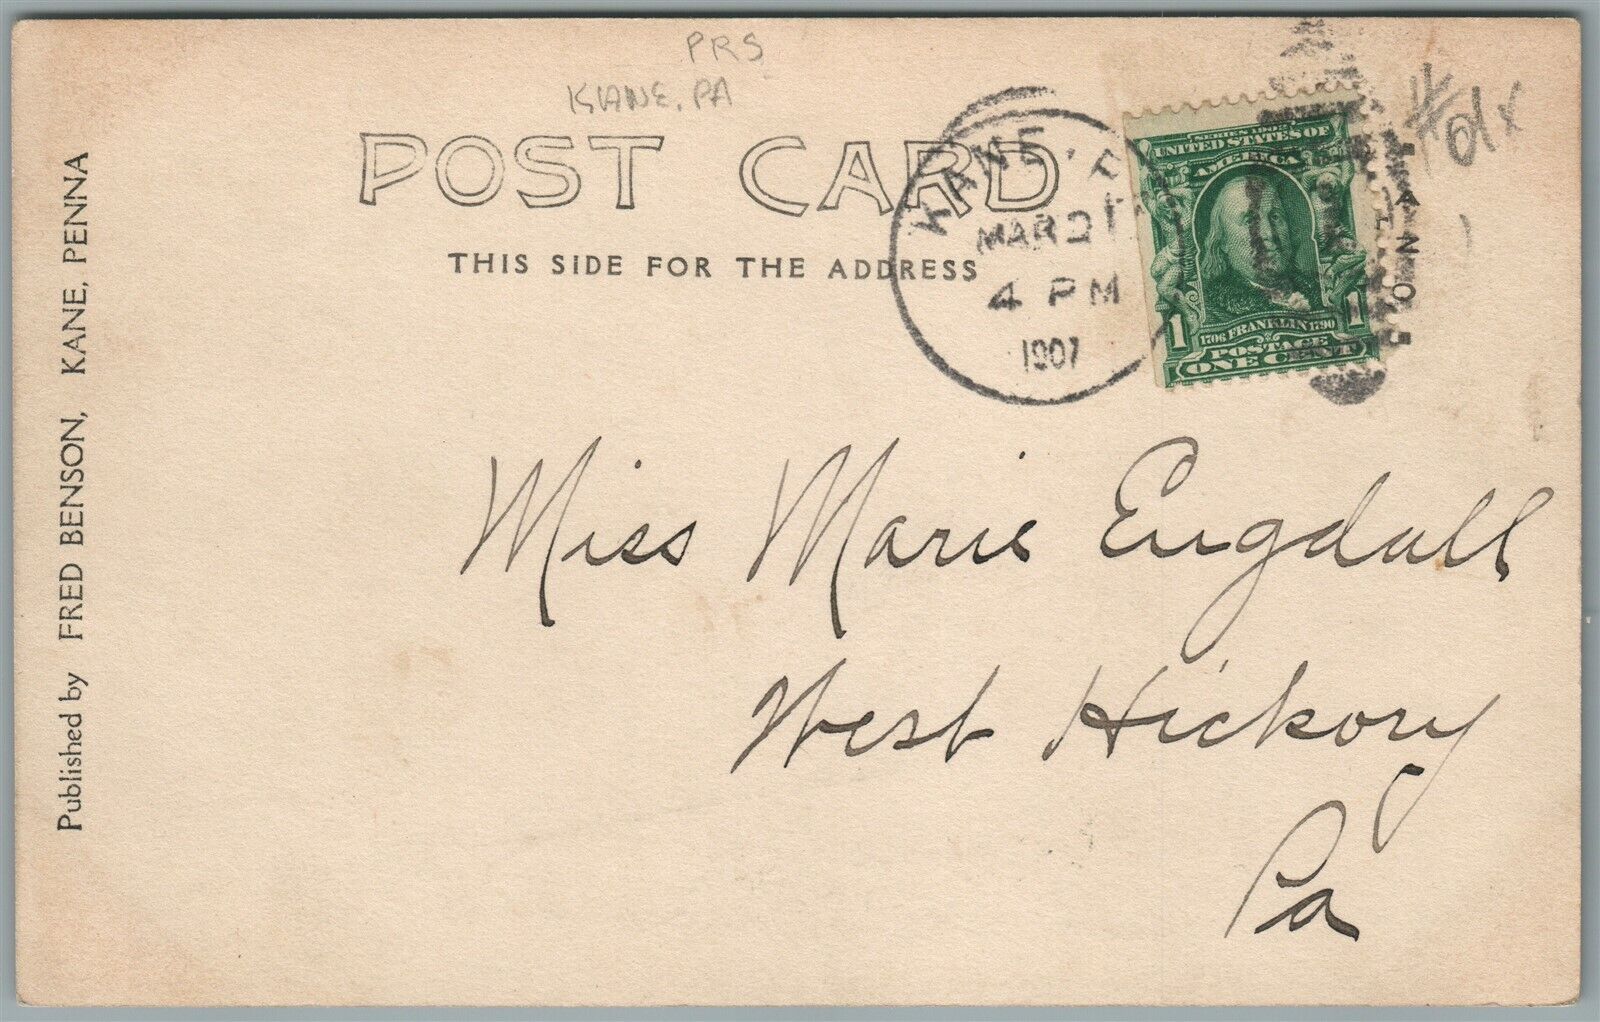 PRS
KANE, PA
POST CARD
THIS SIDE FOR THE ADDRESS
KANE, P
MAR 21
4 PM
1907
SERIES 1902
UNITED STATES OF
AMERICA
1706 FRANKLIN 1790
1 1
POSTAGE
ONE CENT
Miss Marie Engdall
West Hickory
Pa
Published by FRED BENSON, KANE, PENNA